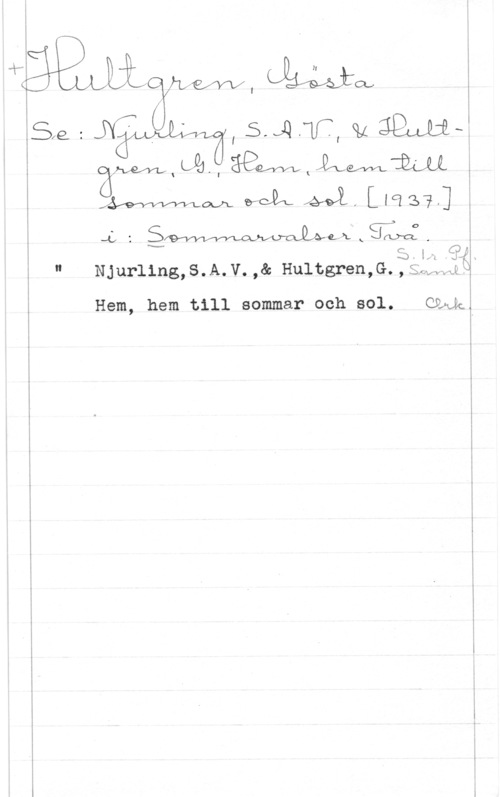 +Hultgren, Gösta
Se: Njurling, S.A.V., & Hult-
gren, G., Hem, hem till
sommar och sol. [1937.]
i: Sommarvalser, Två.
S. 1r. Pf.
" Njurling,S.A.V.,& Hultgren,G., Saml.
Hem, hem till sommar och sol. Ork.